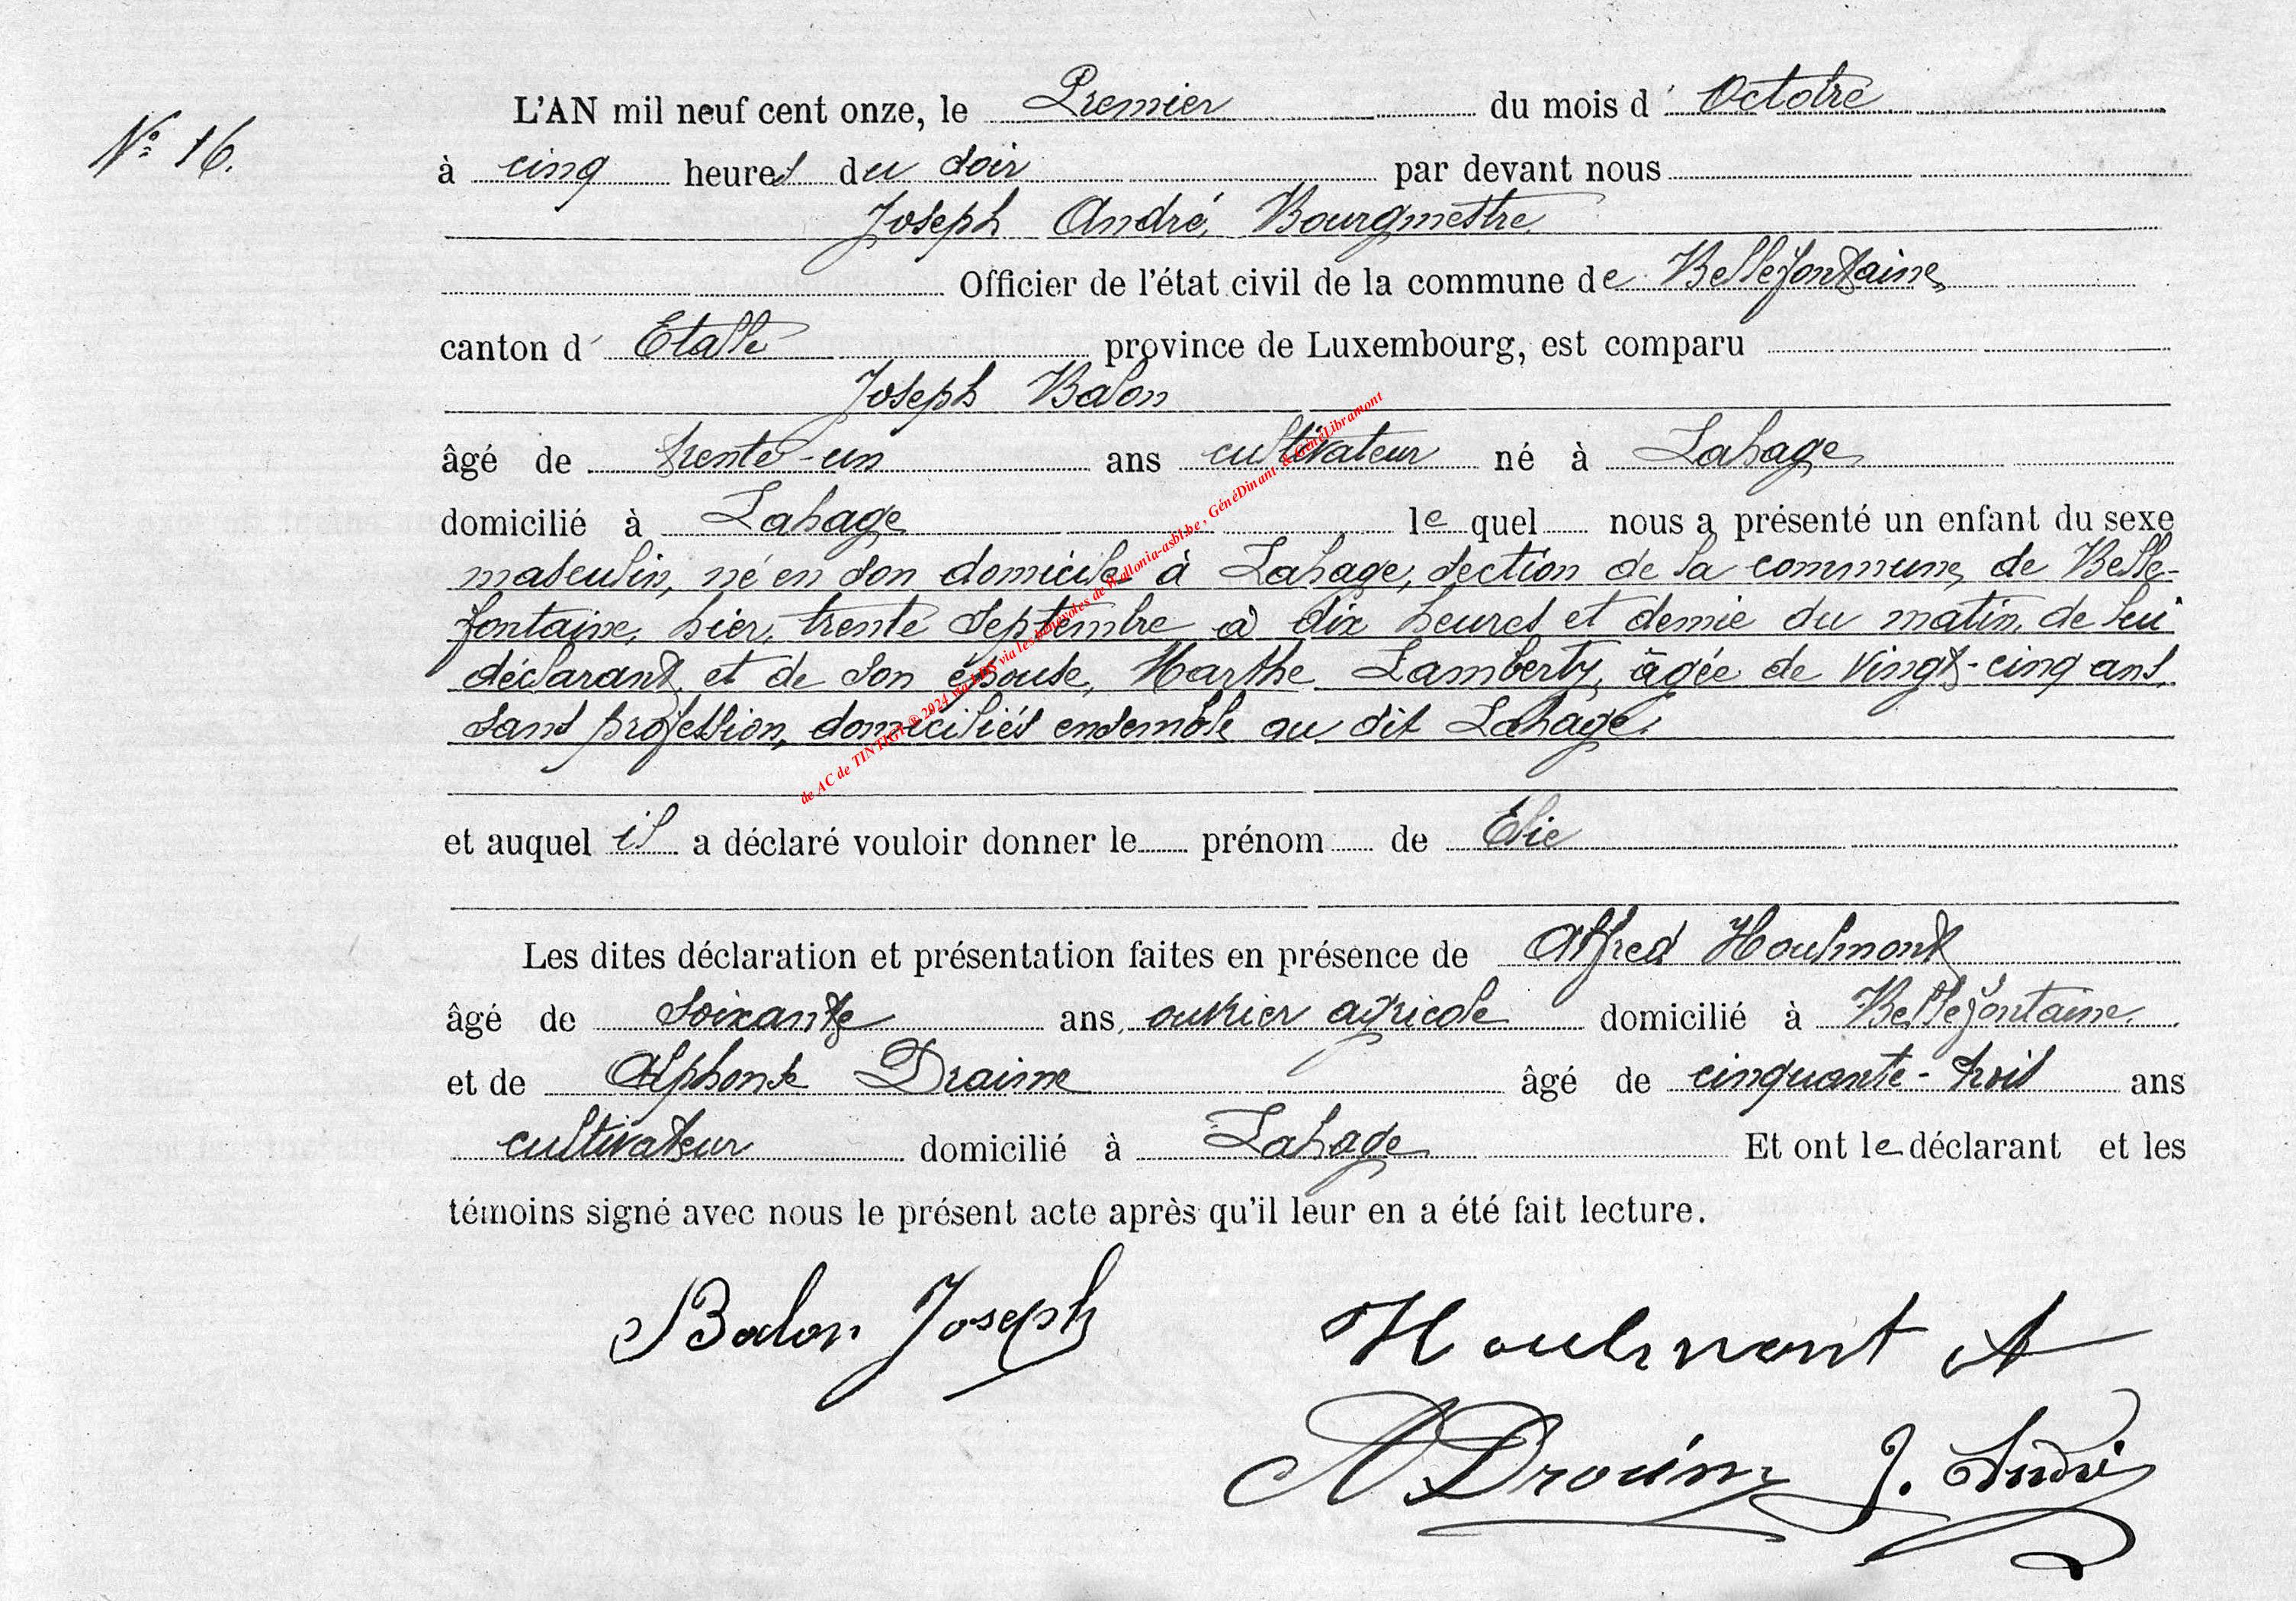 N° 16.
L'AN mil neuf cent onze, le Premier du mois d' Octobre
à cinq heures du soir par devant nous
Joseph André, Bourgmestre
Officier de l'état civil de la commune de Bellefontaine,
canton d' Etalle province de Luxembourg, est comparu
Joseph Balon
âgé de trente-un ans cultivateur né à Lahage
domicilié à Lahage lequel nous a présenté un enfant du sexe
masculin, né en son domicile à Lahage, section de la commune de Belle-
fontaine, hier, trente Septembre à dix heures et demie du matin, de lui
déclarant, et de son épouse, Marthe Lamberty, âgée de vingt-cinq ans,
sans profession, domiciliés ensemble au dit Lahage.
et auquel il a déclaré vouloir donner le prénom de Elie
Les dites déclaration et présentation faites en présence de Alfred Houlmont
âgé de soixante ans, ouvrier agricole domicilié à Bellefontaine.
et de Alphonse Draime âgé de cinquante-trois ans
cultivateur domicilié à Lahage Et ont le déclarant et les
témoins signé avec nous le présent acte après qu'il leur en a été fait lecture.
Balon Joseph
Houlmont A
A Droüin J. André
de AC de TINTIGNY ® 2024 via LDS via les bénévoles de Wallonia-asbl.be, GénéDinant & GénéLibramont